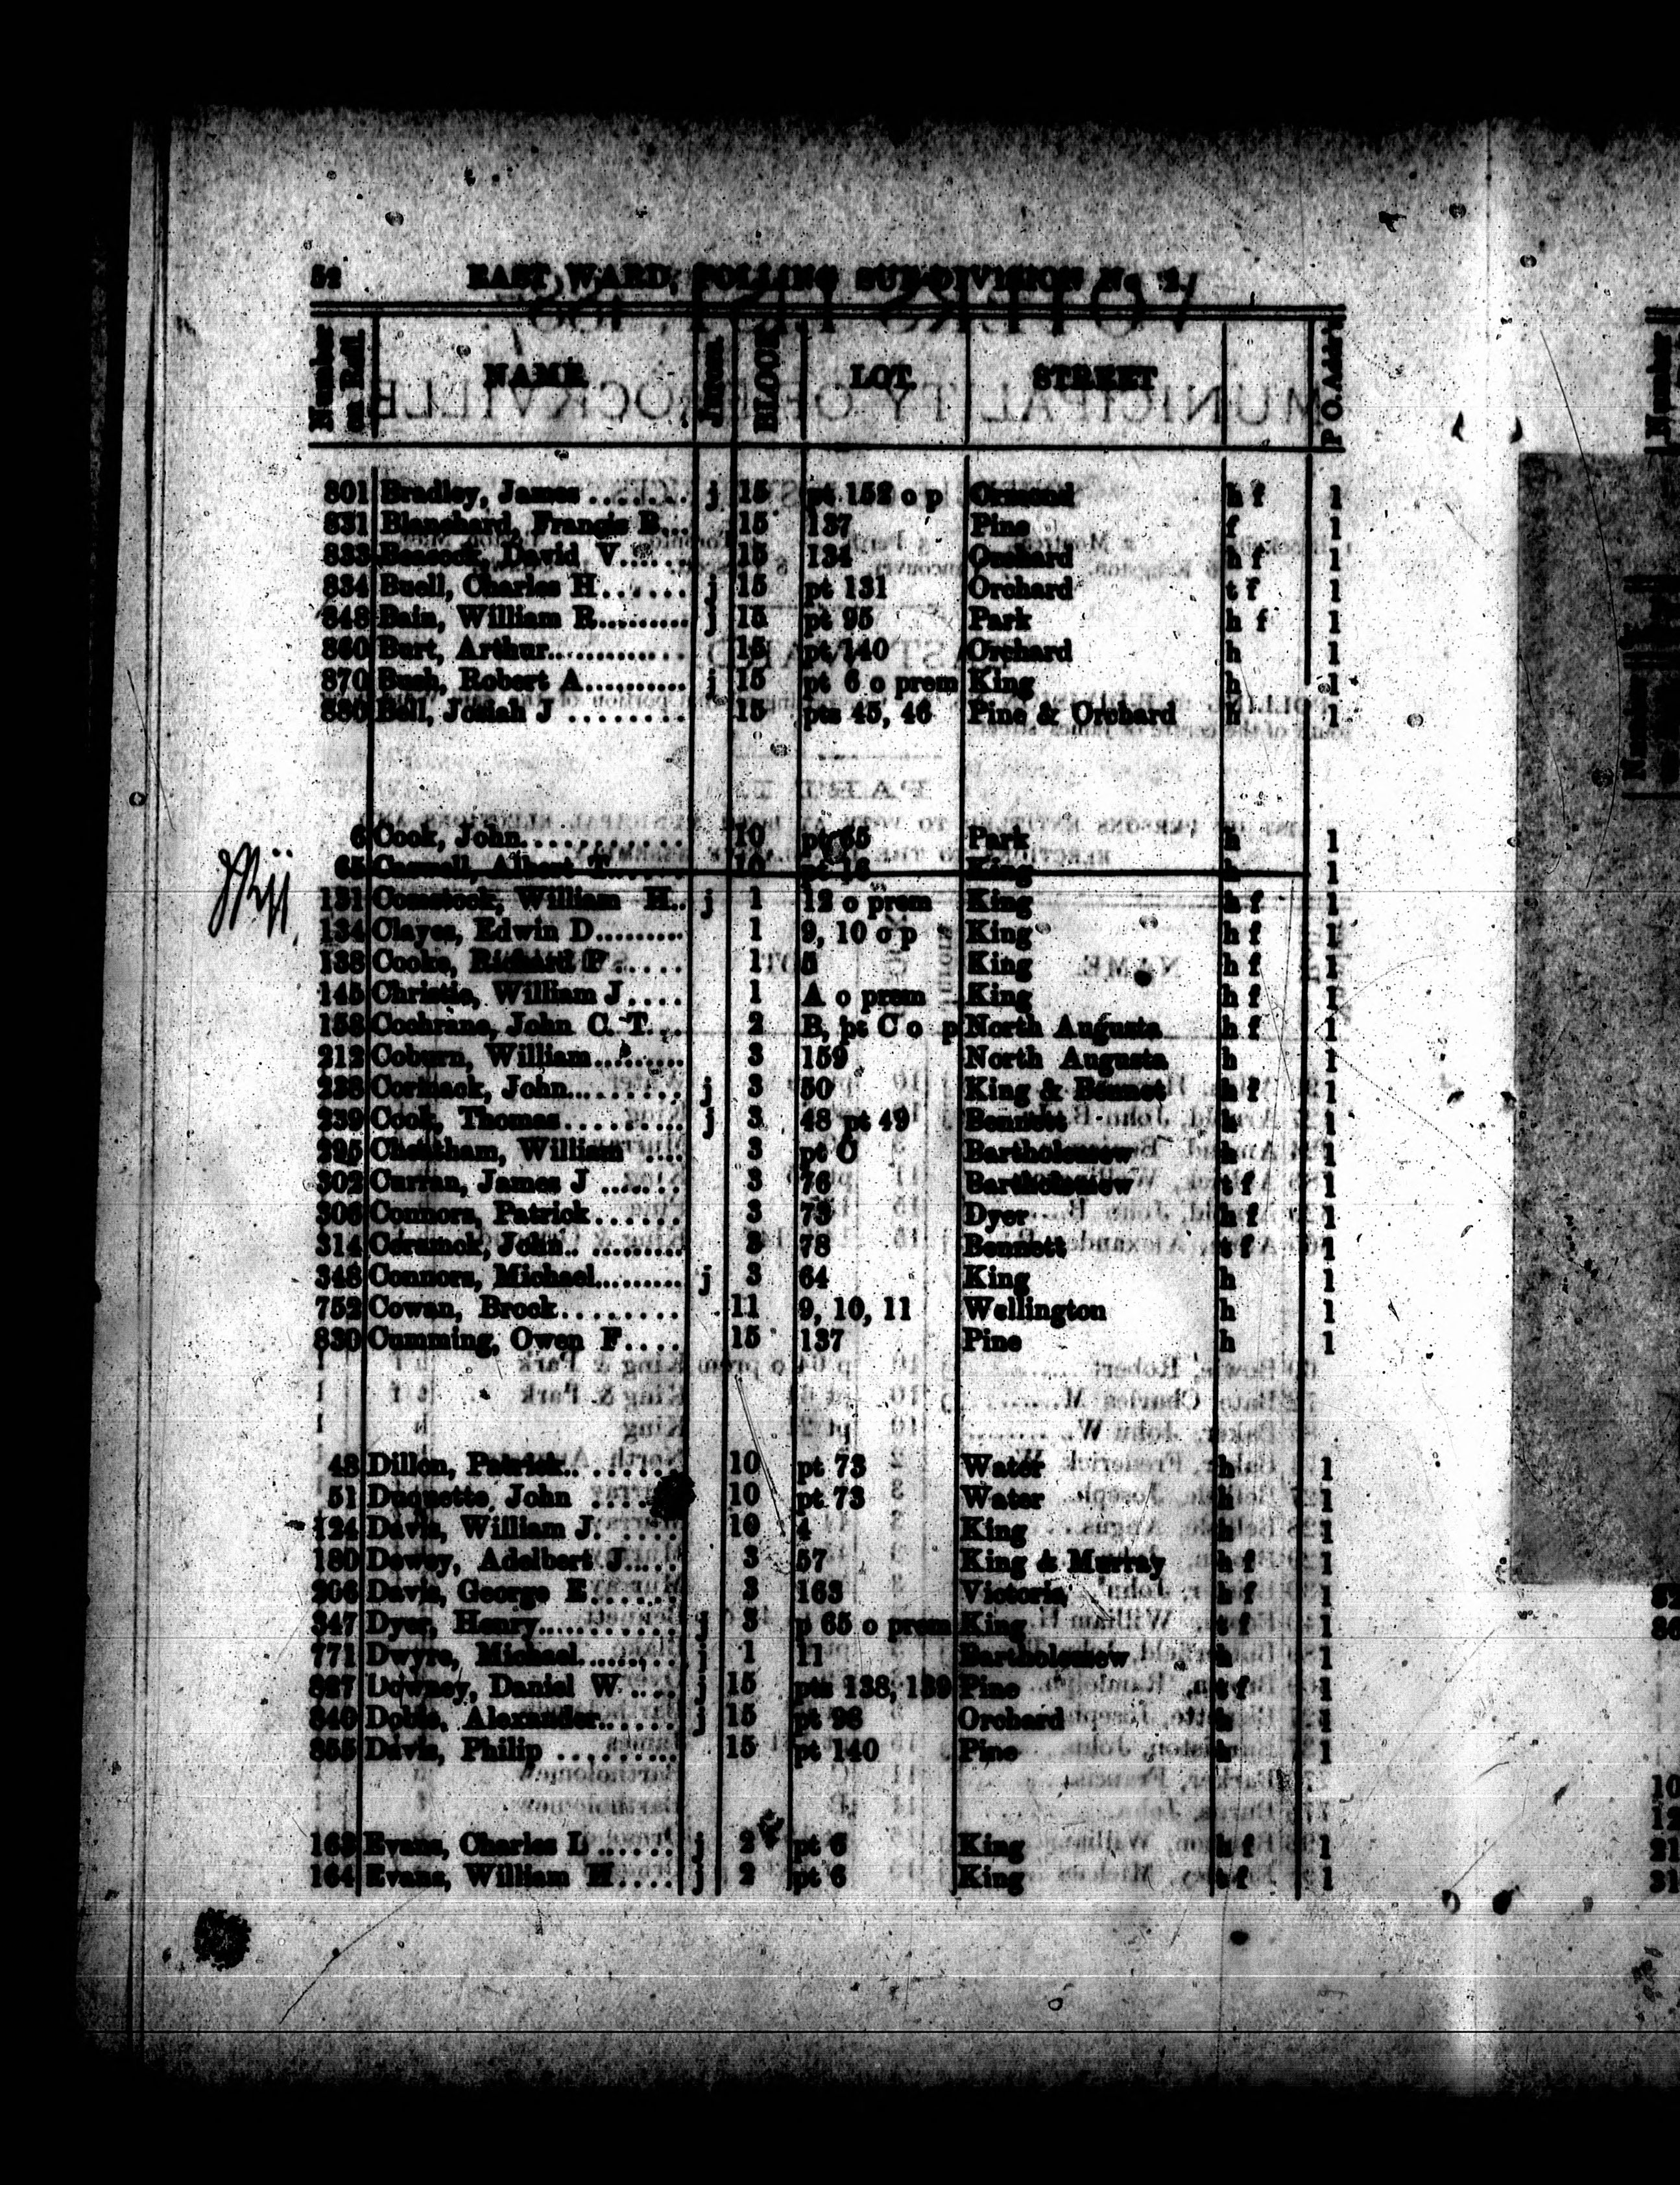 52 EAST WARD, POLLING SUB-DIVISION No 2.
Number on Roll. NAME Jurors. BLOCK LOT. STREET P O. Add's
801 Bradley, James ....... j 15 pt 152 o p Ormond h f 1
831 Blanchard, Francis B... 15 137 Pine f 1
833 David V...... 15 134 Orchard h f 1
834 Buell, Charles H...... j 15 pt 131 Orchard t f 1
848 Bain, William R......... j 15 pt 95 Park h f 1
860 Burt, Arthur............ 15 pt 140 Orchard h 1
870 Bush, Robert A.......... j 15 pt 6 o prem King h 1
880 Bell, Josiah J ........ 15 pts 45, 46 Pine & Orchard h 1
6 Cook, John............ 10 pt 65 Park h 1
65 Albert T....... 10 pt 16 King h 1
131 Comstock, William H.. j 1 12 o prem King h f 1
134 Clayes, Edwin D......... 1 9, 10 o p King h f 1
138 Cooke, Richard F...... 1 5 King h f 1
145 Christie, William J.... 1 A o prem King h f 1
158 Cochrane, John C. T... 2 B, pt C o p North Augusta h f 1
212 Coburn, William......... 3 159 North Augusta h 1
238 Cormack, John.......... j 3 50 King & Bennet h f 1
239 Cook, Thomas.......... j 3 48 pt 49 Bennett h 1
295 Cheatham, William .... 3 pt O Bartholomew h 1
302 Curran, James J ....... 3 76 Bartholomew t f 1
306 Connors, Patrick....... 3 73 Dyer h f 1
314 John.. ......... 3 78 Bennett t f 1
348 Connors, Michael......... j 3 64 King h 1
752 Cowan, Brock......... 11 9, 10, 11 Wellington h 1
830 Cumming, Owen F.... 15 137 Pine h 1
48 Dillon, Patrick.. ....... 10 pt 73 Water h 1
51 Duquette John .... 10 pt 73 Water h 1
124 Davis, William J. .... 10 4 King h 1
180 Dewey, Adelbert J..... 3 57 King & Murray h f 1
206 Davis, George E....... 3 163 Victoria h f 1
347 Dyer, Henry............ j 3 p 65 o prem King t f 1
771 Dwyre, Michael.......... j 1 11 Bartholomew h 1
827 Downey, Daniel W .... j 15 pts 138, 139 Pine t f 1
840 Alexander...... j 15 pt 98 Orchard h 1
855 Davis, Philip ......... 15 pt 140 Pine h 1
163 Evans, Charles L ...... j 2 pt 6 King h f 1
164 Evans, William H.... j 2 pt 6 King t f 1